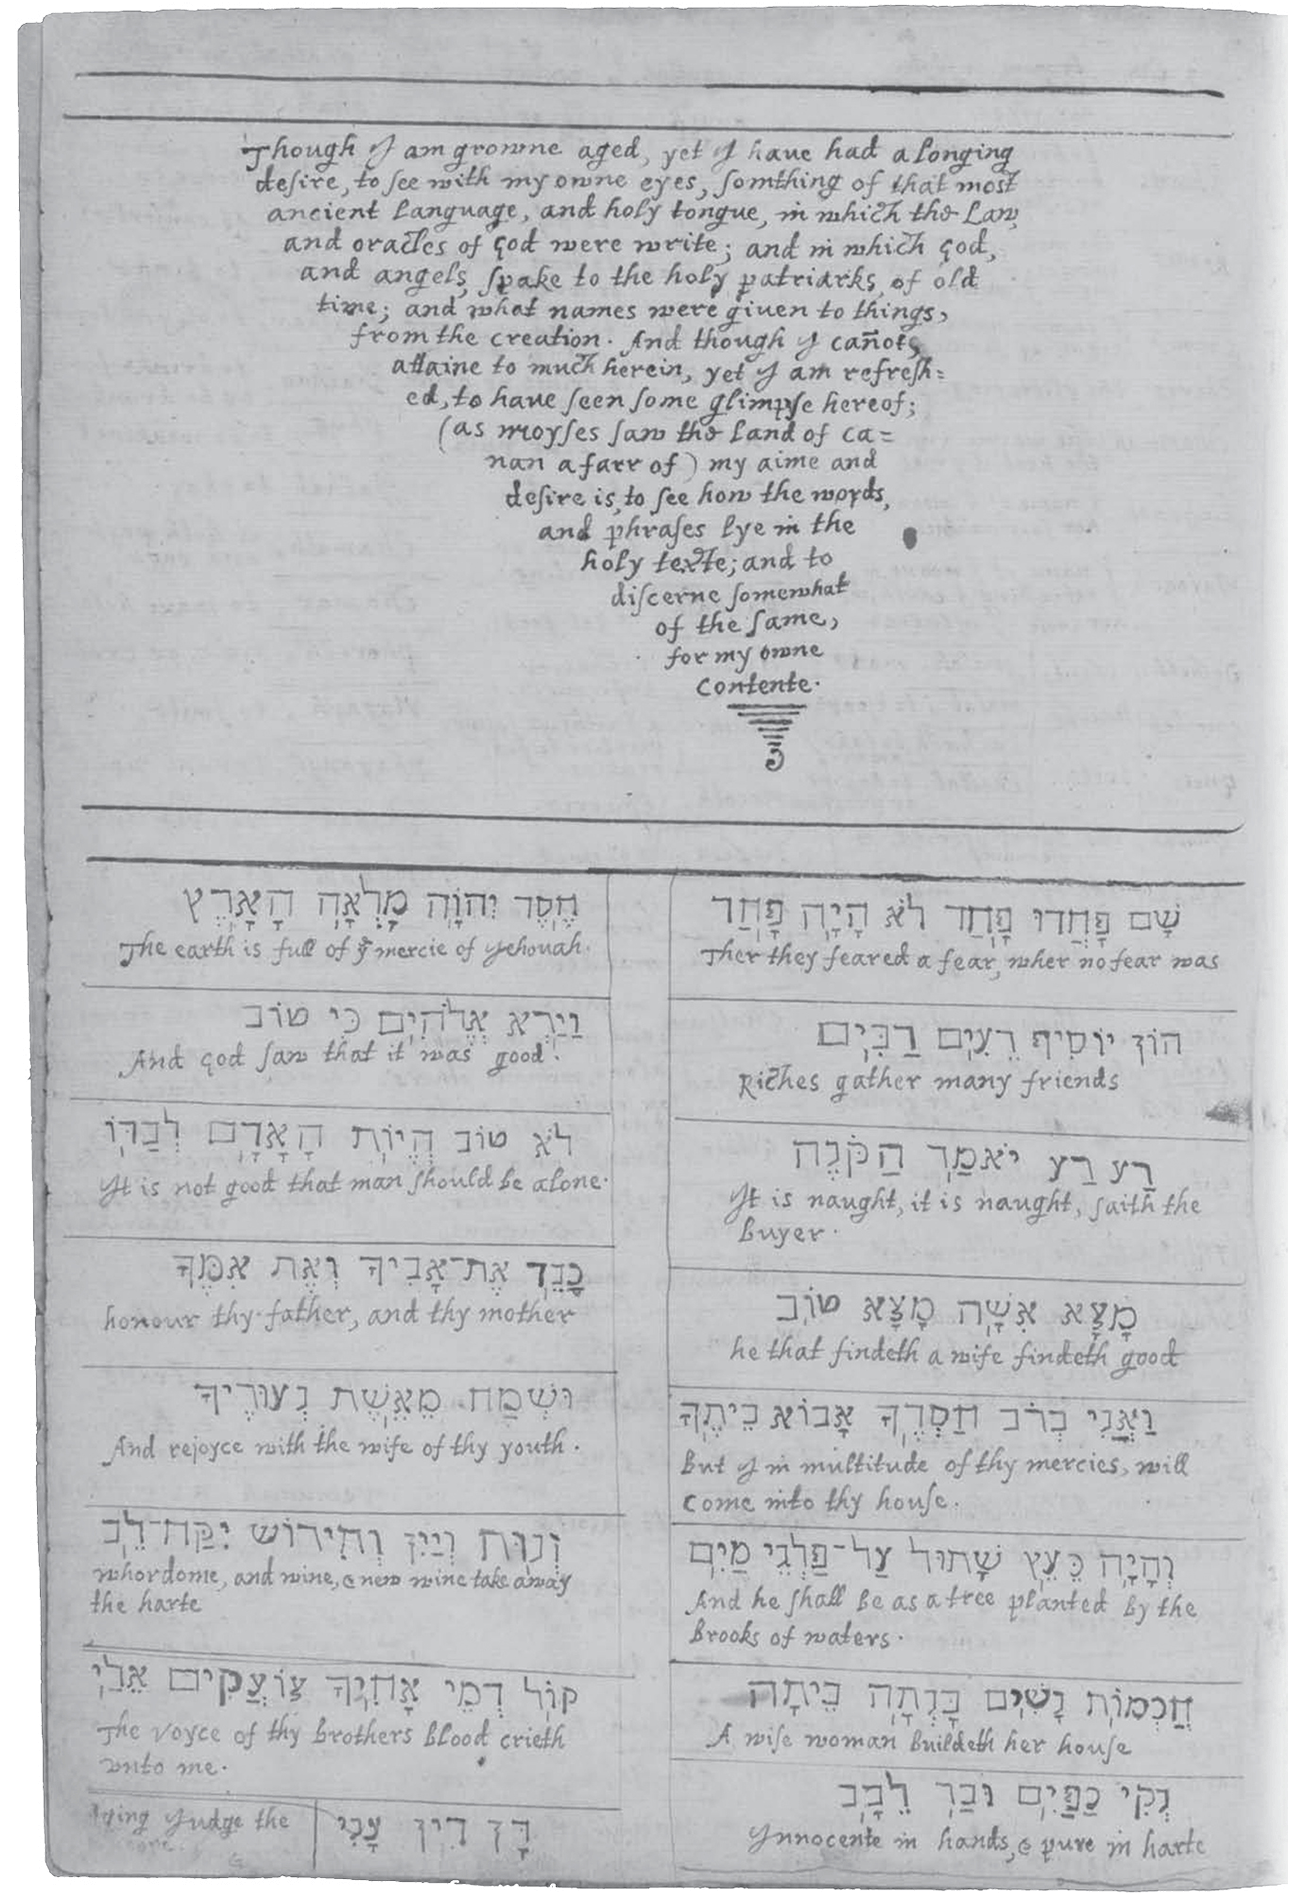 Though I am growne aged, yet I haue had a longing
desire, to see with my owne eyes, somthing of that most
ancient language, and holy tongue, in which the Law,
and oracles of God were write; and in which God,
and angels, spake to the holy patriarks, of old
time; and what names were giuen to things,
from the creation. And though I cañot
attaine to much herein, yet I am refresh=
ed, to haue seen some glimpse hereof;
(as Moyses saw the Land of ca=
nan afarr of) my aime and
desire is, to see how the words,
and phrases lye in the
holy texte; and to
discerne somewhat
of the same,
for my owne
Contente.
חֶסֶד יְהוָֹה מָלְאָה הָאָרֶץ
The earth is full of yͤ mercie of Jehovah.
וַיַרְא אֱלֹהִים כִּי טוֹב
And God saw that it was good.
לֹא טוֹב הֱיוֹת הָאָדָם לְבַדּוֹ
It is not good that man should be alone.
כַּבֵּד אֶת־אָבִיךָ וְאֶת אִמֶּךָ
honour thy father, and thy mother
וּשְׂמַח מֵאֵשֶׁת נְעוּרֶיךָ
And rejoyce with the wife of thy youth.
זְנוּת וְיַיִן וְתִירוֹשׁ יִקַּח־לֵב
whordome, and wine, & new wine take away
the harte
קוֹל דְמֵי אָחִיךָ צוֹעֲקִים אֵלַי
The voyce of thy brothers blood crieth
vnto me.
Judge the
דָּן דִין עָנִי
שָׁם פָּחֲדוּ פָּחַד לֹא הָיָה פָּחַד
Ther they feared a fear, wher no fear was
הוֹן יוֹסִיף רֵעִים רַבִּים
Riches gather many friends
רַע רַע יֹאמַר הַקֹּנֶה
It is naught, it is naught, saith the
buyer.
מָצָא אִשָּׁה מָצָא טוֹב
he that findeth a wife findeth good
וַאֲנִי בְּרֹב חַסְדֶּךָ אָבוֹא בֵיתֶךָ
But I in multitude of thy mercies, will
come into thy house.
וְהָיָה כֵּעֵץ שָׁתוּל עַל־פַּלְגֵי מַיִם
And he shall be as a tree planted by the
brooks of waters.
חַכְמוֹת נָשִׁים בָּנְתָה בֵיתָה
A wise woman buildeth her house
נְקִי כַפַּיִם וּבַר לֵבָב
Innocente in hands, & pure in harte